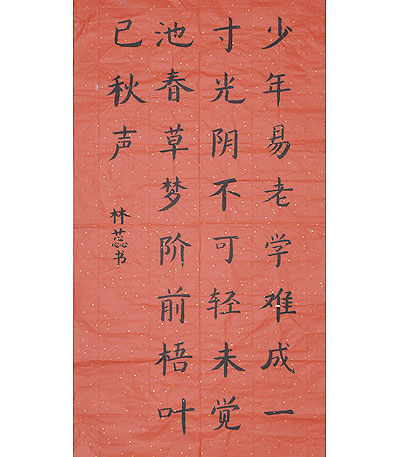 少年易老学难成一
寸光阴不可轻未觉
池春草梦阶前梧叶
已秋声
林蕊书